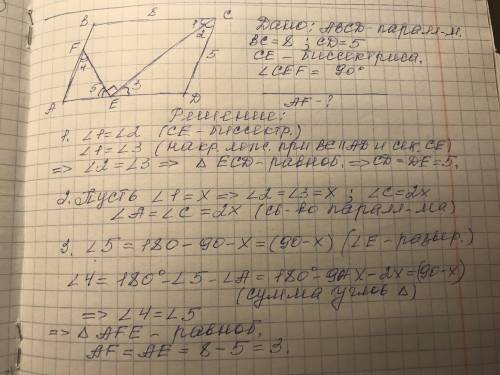 B 8 C
F 1 2
4 5
5 3
A E D
Дано: ABCD-парал-м.
BC=8; CD=5
CE - биссектриса.
∠CEF = 90°
AF-?
Решение:
1. ∠1=∠2 (CE-биссектр.)
∠1=∠3 (накр. леж. при BC||AD и сек. CE)
=> ∠2=∠3 => △ECD-равноб. => CD=DE=5.
2. Пусть ∠1=x => ∠2=∠3=x; ∠C=2x
∠A=∠C=2x (св-во парал-ма)
3. ∠5=180-90-x=(90-x) (∠E-развер.)
∠4=180°-∠5-∠A=180°-90+x-2x=(90-x)
(сумма углов △)
=> ∠4=∠5
=> △AFE - равноб.
AF=AE=8-5=3.